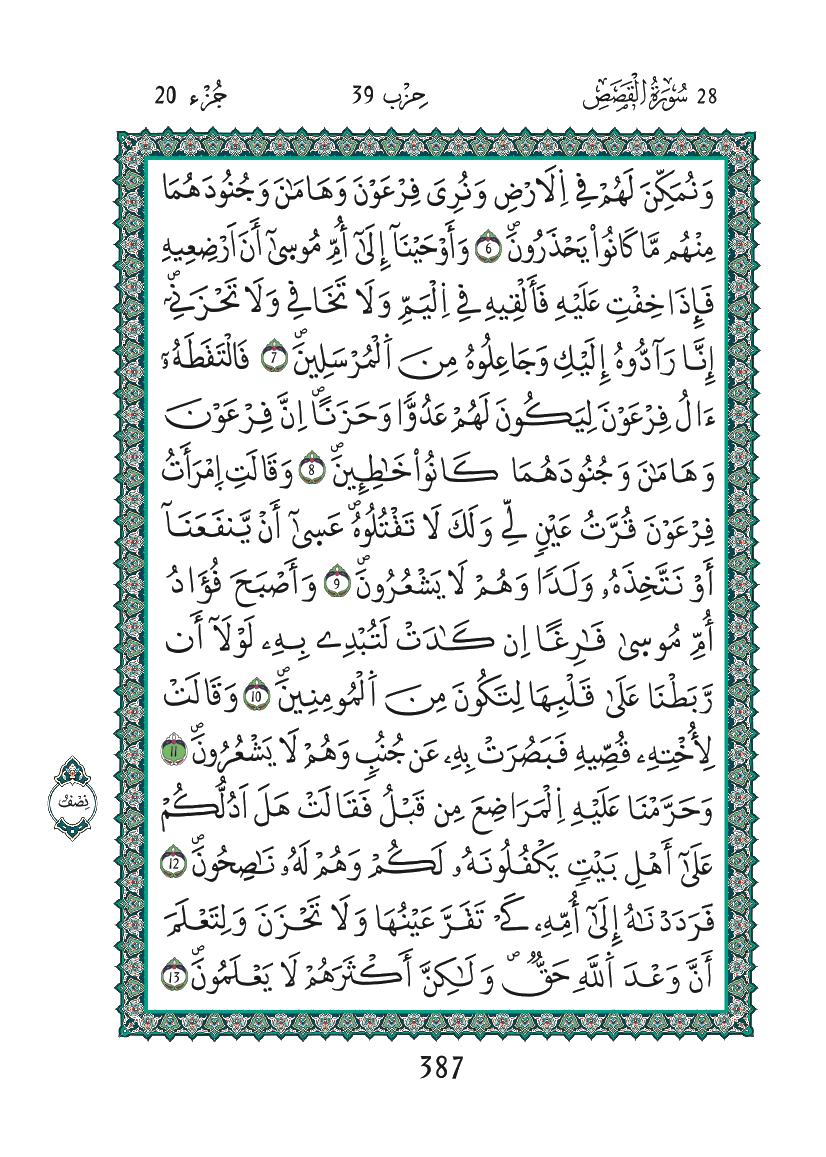 28 سُورَةُ الْقَصَصِ حِزْب 39 جُزْء 20
وَنُمَكِّنَ لَهُمْ فِي اِ۬لَارْضِ وَنُرِيَ فِرْعَوْنَ وَهَامَٰنَ وَجُنُودَهُمَا
مِنْهُم مَّا كَانُواْ يَحْذَرُونَۖ 6 وَأَوْحَيْنَآ إِلَىٰٓ أُمِّ مُوسَىٰٓ أَنَ اَرْضِعِيهِ
فَإِذَا خِفْتِ عَلَيْهِ فَأَلْقِيهِ فِي اِ۬لْيَمِّ وَلَا تَخَافِي وَلَا تَحْزَنِيۖ
إِنَّا رَآدُّوهُ إِلَيْكِ وَجَاعِلُوهُ مِنَ اَ۬لْمُرْسَلِينَۖ 7 فَالْتَقَطَهُۥٓ
ءَالُ فِرْعَوْنَ لِيَكُونَ لَهُمْ عَدُوّٗا وَحَزَناًۖ اِنَّ فِرْعَوْنَ
وَهَامَٰنَ وَجُنُودَهُمَا كَانُواْ خَٰطِـِٕينَۖ 8 وَقَالَتِ اِ۪مْرَأَتُ
فِرْعَوْنَ قُرَّتُ عَيْنٖ لِّي وَلَكَ لَا تَقْتُلُوهُۖ عَسَىٰٓ أَنْ يَّنفَعَنَآ
أَوْ نَتَّخِذَهُۥ وَلَدٗا وَهُمْ لَا يَشْعُرُونَۖ 9 وَأَصْبَحَ فُؤَادُ
أُمِّ مُوسَىٰ فَٰرِغًا اِن كَادَتْ لَتُبْدِے بِهِۦ لَوْلَآ أَن
رَّبَطْنَا عَلَىٰ قَلْبِهَا لِتَكُونَ مِنَ اَ۬لْمُومِنِينَۖ 10 وَقَالَتْ
لِأُخْتِهِۦ قُصِّيهِ فَبَصُرَتْ بِهِۦ عَن جُنُبٖ وَهُمْ لَا يَشْعُرُونَۖ 11
وَحَرَّمْنَا عَلَيْهِ اِ۬لْمَرَاضِعَ مِن قَبْلُ فَقَالَتْ هَلَ اَدُلُّكُمْ
نِصْفُ
عَلَىٰٓ أَهْلِ بَيْتٖ يَكْفُلُونَهُۥ لَكُمْ وَهُمْ لَهُۥ نَٰصِحُونَۖ 12
فَرَدَدْنَٰهُ إِلَىٰٓ أُمِّهِۦ كَےْ تَقَرَّ عَيْنُهَا وَلَا تَحْزَنَ وَلِتَعْلَمَ
أَنَّ وَعْدَ اَ۬للَّهِ حَقّٞۖ وَلَٰكِنَّ أَكْثَرَهُمْ لَا يَعْلَمُونَۖ 13
387